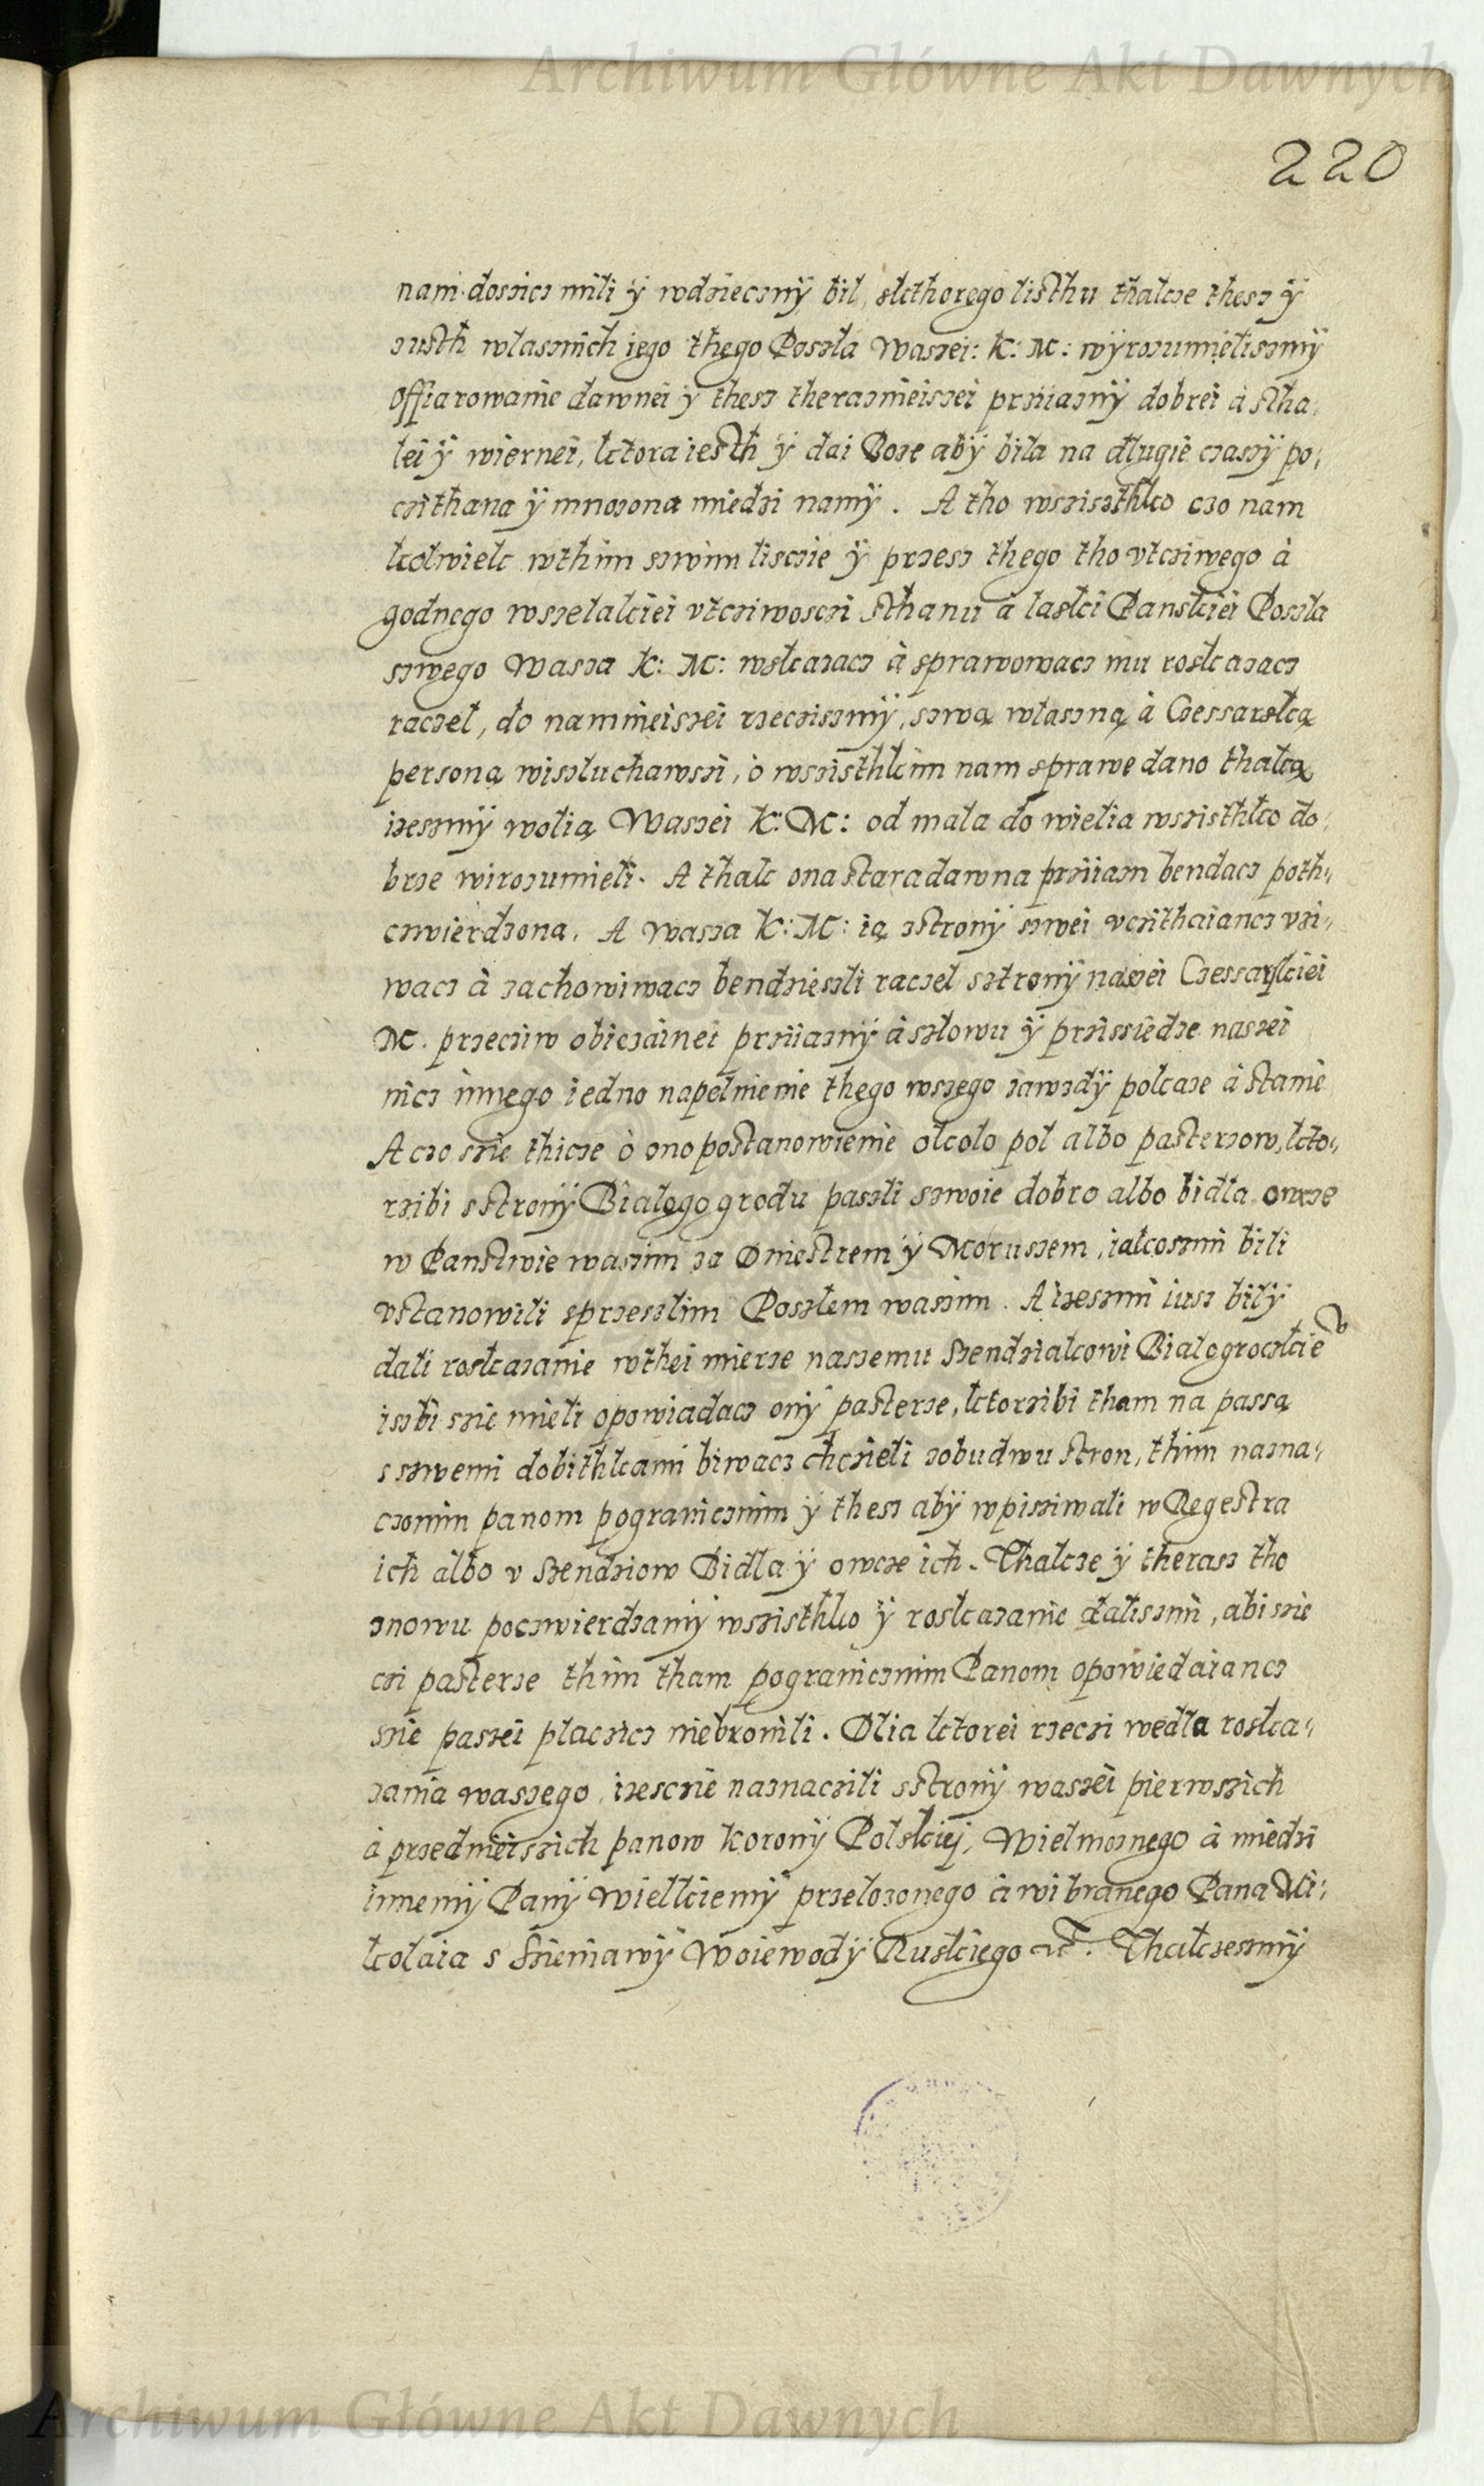 Archiwum Główne Akt Dawnych
220
nam doszicz mili ÿ wdzięcznÿ bil, kthorego listhu thakze thesz ÿ
zusth wlasznich iego thego Poszla Waszei: K: M: wÿrozumieliszmÿ
Offiarowanie dawnei ÿ thesz theraznieiszei prziiaznÿ dobrei à stha,
lei ÿ wiernei, ktora iesth ÿ dai Boze abÿ bila na dlugie czaszÿ po,
czithana ÿ mnozona miedzi namÿ. A tho wszisthko czo nam
kolwiek wthim szwim liscie ÿ przesz thego tho vtcziwego à
godnego wszelakiei vtcziwosczi sthanu à laski Panskiei Poszla
szwego Wasza K: M: wskazacz à sprawowacz mu roskazacz
raczel, do namnieiszei rzecziszmÿ, szwą wlaszną à Czessarską
personą wiszluchawszi, ò wszisthkim nam sprawe dano thaką
izeszmÿ wolią Waszei K: M: od mala do wielia wszisthko do,
brze wirozumieli. A thak ona stara dawna prziiazn bendacz poth,,
czwierdzona. A wasza K: M: ią zstronÿ szwei vczithaiancz vzi,,
wacz à zachowiwacz bendzieszli raczel sztronÿ naszei Czessarskiei
M. przecziw obiczainei prziiaznÿ à szlowu ÿ przissiedze naszei
nicz innego iedno napelnienie thego wszego zawzdÿ pokaze à stanie
A czo szie thicze ò ono postanowienie okolo pol albo pasterzow, kto,,
rzibi sstronÿ Bialogogrodu paszli szwoie dobro albo bidla owcze
w Panstwie waszim za Dniestrem ÿ Moruszem, iakoszmi bili
vstanowili sprzeszlim Poszlem waszim. A izeszmi iusz bilÿ
dali roskazanie wthei mierze naszemu Szendziakowi Bialogroczkie v
iszbi szie mieli opowiadacz onÿ pasterze, ktorzibi tham na passą
s szwemi dobithkami biwacz chcieli zobudwu stron, thim nazna,,
czonim panom pogranicznim ÿ thesz abÿ wpisziwali w Regestra
ich albo v Szendziow Bidla ÿ owcze ich. Thakze ÿ therasz tho
znowu poczwierdzamÿ wszisthko ÿ roskazanie dalisзmi, abi szie
czi pasterze thim tham pogranicznim Panom opowiedaiancz
szie paszei placzicz niebronili. Dlia ktorei rzeczi wedla roska,,
zania waszego, izescie naznaczili sstronÿ waszei pierwszich
à przednieiszich panow koronÿ Polskiej, Wielmoznego à miedzi
innemÿ Panÿ wielkiemÿ przelozonego à wibranego Pana Mi,
kolaia s Szieniawÿ Woiewodÿ Ruskiego etc. Thakzeszmÿ
Archiwum Główne Akt Dawnych